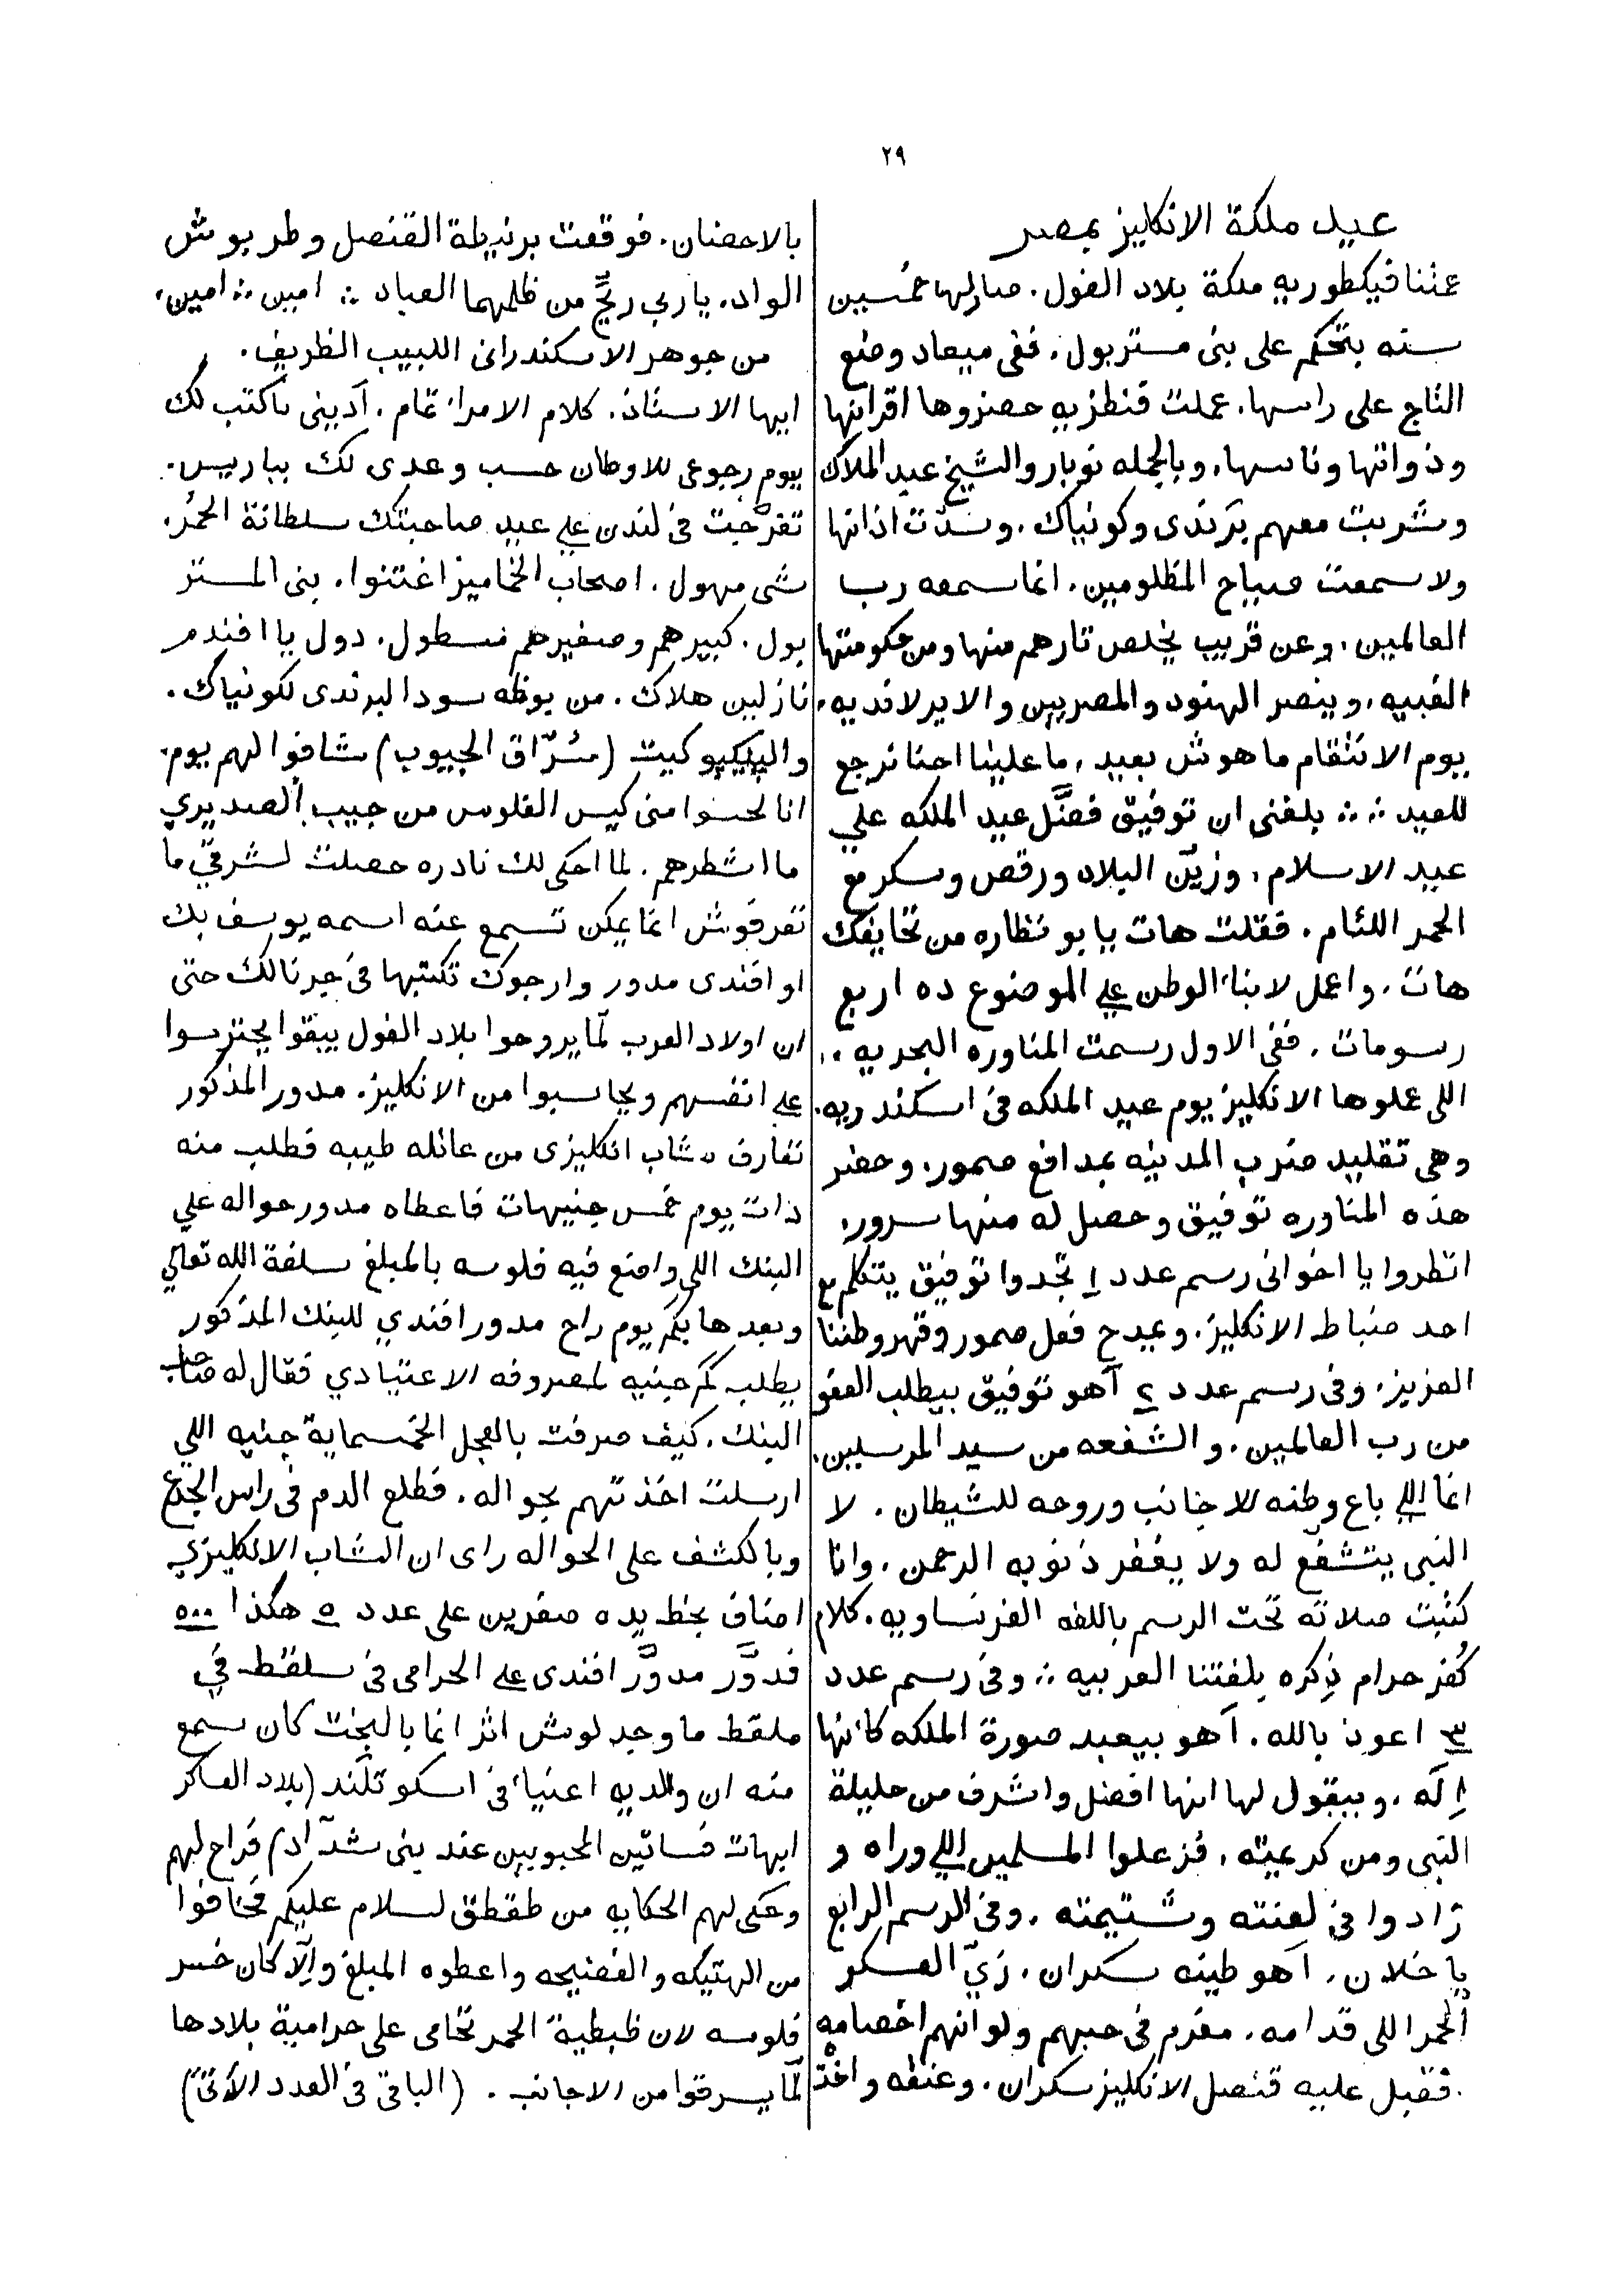 ٢٩
عيد ملكة الانكليز بمصر
عمتنا فيكطوريه ملكة بلاد الفول. صار لها خمسين
سنه بتحكم على بنى مستربول. ففى ميعاد وضع
التاج على راسها. عملت فنطزيه حضروها اقرانها
وذواتها وناسها. وبالجمله نوبار والشيخ عبد الملاك
وشربت معهم برندى وكونياك. وسدّت اذانها
ولا سمعت صياح المظلومين. انما سمعه رب
العالمين. وعن قريب يخلص تارهم منها ومن حكومتها
الغبيه. وينصر الهنود والمصريين والايرلانديه.
يوم الانتقام ما هوش بعيد. ما علينا احنا نرجع
للعيد ؞ ؞ بلغنى ان توفيق فضَّل عيد الملكه علي
عيد الاسلام. وزيّن البلاد ورقص وسكر مع
الحمر اللئام. فقلت هات يا بو نظاره من تحايفك
هات. واعمل لابناء الوطن علي الموضوع ده اربع
رسومات. ففى الاول رسمت المناوره البحريه..
اللى عملوها الانكليز يوم عيد الملكه فى اسكندريه.
وهى تقليد ضرب المدينه بمدافع صمور. وحضر
هذه المناوره توفيق وحصل له منها سرور.
انظروا يا اخوانى رسم عدد ١ تجدوا توفيق يتكلم مع
احد ضباط الانكليز. ويمدح فعل صمور وقهر وطننا
العزيز. وفى رسم عدد ٢ آهو توفيق بيطلب العفو
من رب العالمين. والشفعه من سيد المرسلين.
انما اللي باع وطنه للاجانب وروحه للشيطان. لا
النبى يتشفع له ولا يغفر ذنوبه الرحمن. وانا
كتبت صلاته تحت الرسم باللغه الفرنساويه. كلام
كُفر حرام ذِكره بلغتنا العربيه ؞ وفى رسم عدد
٣ اعوذ بالله. آهو بيعبد صورة الملكه كانها
إله. وبيقول لها انها افضل واشرف من حليلة
النبى ومن كرعيته. فزعلوا المسلمين اللي وراه و
زادوا فى لعنته وشتيمته. وفى الرسم الرابع
يا خلان. آهو طينه سكران. زيّ العسكر
الحمر اللى قدامه. مغرم فى حبهم ولو انهم اخصامه
فقبل عليه قنصل الانكليز سكران. وعنقه واخذ
بالاحضان. فوقعت برنيطة القنصل وطربوش
الواد. يا ربى ريَّح من ظلمهما العباد ؞ امين ؞ امين.
من جوهر الاسكندرانى اللبيب الظريف.
ايها الاستاذ. كلام الامراء تمام. آدينى باكتب لك
بيوم رجوعى للاوطان حسب وعدى لك بباريس.
تفرّجت فى لندن علي عيد صاحبتك سلطانة الحمُر.
شى مهول. اصحاب الخماميز اغتنوا. بنى المستر
بول. كبيرهم وصغيرهم مسطول. دول يا افندم
نازلين هلاك. من بوظه سودا لبرندى لكونياك.
والپيكپوكيت (سُرّاق الجيوب) شافوا لهم يوم.
انا لحسوا منى كيس الفلوس من جيب الصديري
ما اشطرهم. لما احكى لك نادره حصلت لشرقىّ ما
تعرفوش انما يمكن تسمع عنه اسمه يوسف بك
او افندى مدور وارجوك تكتبها فى جرنالك حتى
ان اولاد العرب لمّا يروحوا بلاد الفول يبقوا يحترسوا
على انفسهم ويحاسبوا من الانكليز. مدور المذكور
تعارف بشاب انكليزى من عائله طيبه فطلب منه
ذات يوم خمس جنيهات فاعطاه مدور حواله علي
البنك اللى واضع فيه فلوسه بالمبلغ سلفة الله تعالي
وبعدها بكم يوم راح مدور افندي للبنك المذكور
يطلب كم جنيه لمصروفه الاعتيادي فقال له صاحب
البنك. كيف صرفت بالعجل الخمسماية جنيه اللي
ارسلت اخذتهم بحواله. فطلع الدم فى راس الجدع
وبالكشف على الحواله راى ان الشاب الانكليزي
اضاف بخط يده صفرين على عدد ٥ هكذا ٥٠٠
فدوَّر مدوَّر افندى علي الحرامى فى سلقط في
ملقط ما وجد لوش اثر انما بالبخت كان سمع
منه ان والديه اغنياء فى اسكوتلند (بلاد العساكر
ابهات فساتين المحبوبين عند بنى شدّاد) فراح لهم
وحكى لهم الحكايه من طقطق لسلام عليكم فخافوا
من الهتيكه والفضيحه واعطوه المبلغ والّا كان خسر
فلوسه لان ظبطية الحمر تحامى على حرامية بلادها
لمّا يسرقوا من الاجانب. (الباقى فى العدد الآتى)